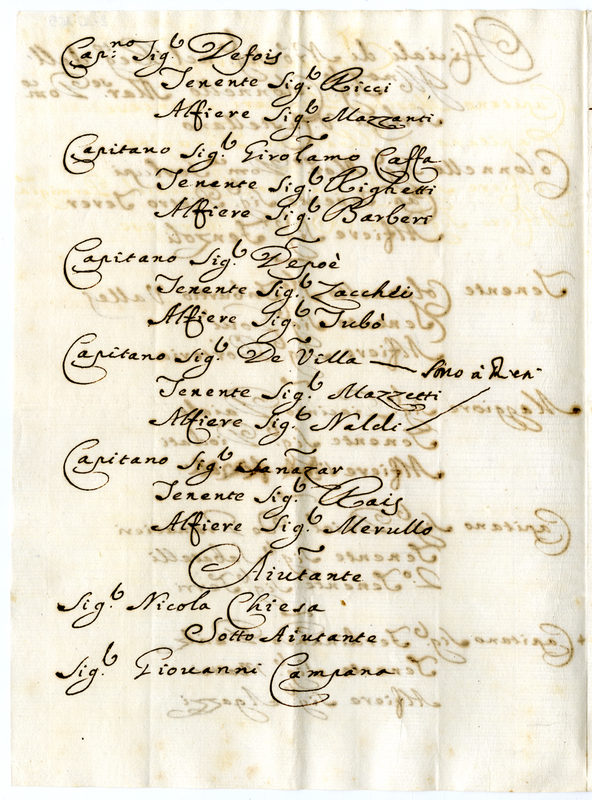 Cap.no Sig.r Defois
Tenente Sig.r Ricci
Alfiere Sig.r Mazzanti.
Capitano Sig.r Girolamo Caffa
Tenente Sig.r Righetti
Alfiere Sig.r Barberi
Capitano Sig.r Depoè
Tenente Sig.r Zacchei
Alfiere Sig.r Tubò
Capitano Sig.r De Villa — sono à
Tenente Sig.r Mazzetti
Alfiere Sig.r Naldi
Capitano Sig.r Sanazar
Tenente Sig.r Rais
Alfiere Sig.r Merullo
Aiutante
Sig.r Nicola Chiesa
Sotto Aiutante
Sig.r Giovanni Campana